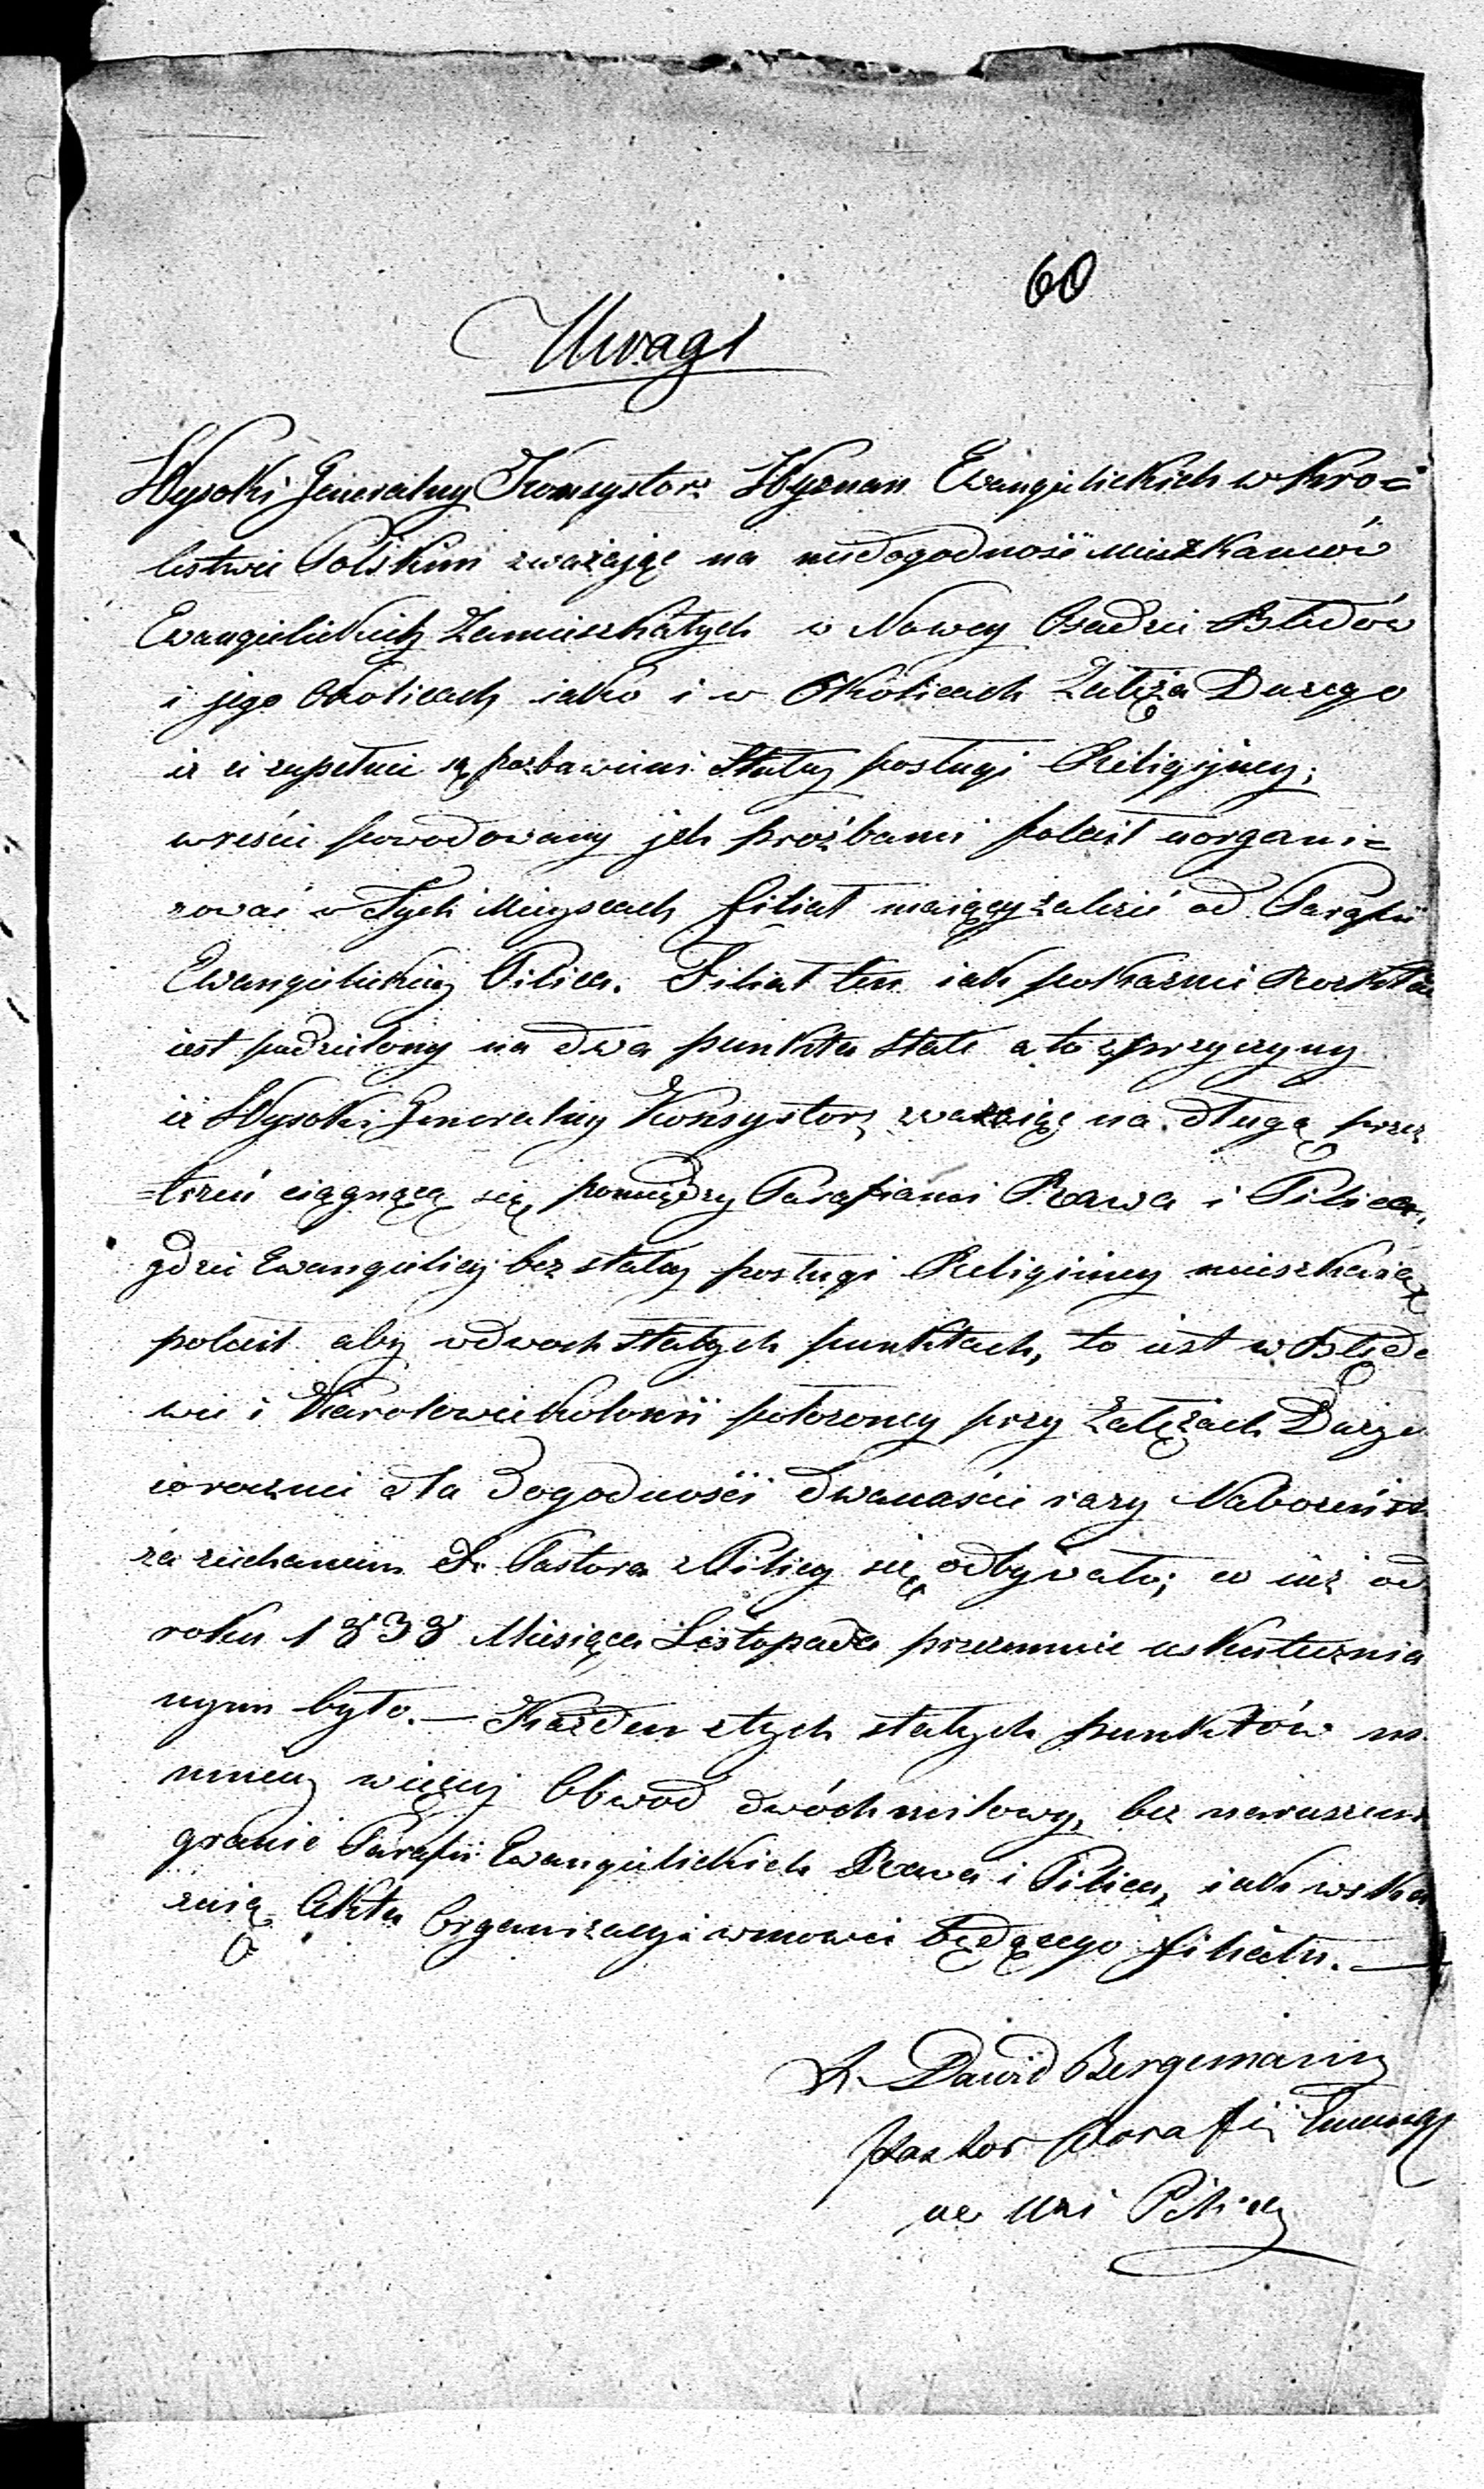 60
Uwagi
Wysoki Generalny Konsystorz Wyznań Ewangielickich w Kró=
lestwie Polskim zważając na niedogodność Mieszkańców
Ewangielickich Zamieszkałych w Nowey Osadzie Błędów
i jego Okolicach iako i w Okolicach Załęża Dużego
iż ci zupełnie są pozbawieni Stałey posługi Religijney;
wreście powodowany jch prożbami polecił uorgani=
zować w Tych Mieyscach filiał maiący zależić od Parafii
Ewangielickiey Pilica. Filiał ten iak pokaznie Rozkład
iest podzielony na dwa punkta stałe a to z przyczyny
iż Wysoki Generalny Konsystorz zważaiąc na długą przes
=trzeń ciągnącą się pomiędzy Parafiami Rawa i Pilica,
gdzie Ewangielicy bez stałey posługi Religiiney mieszkaią
polecił aby w dwoch stałych punktach, to iest w Błędo
wie i Karolowie Kolonii położoney przy Załężach Duży
corocznie dla Dogodności dwanaście razy Nabożeńst
za ziechaniem X. Pastora z Pilicy się odbywało; co iuż od
roku 1838 Miesiąca Listopada przezemnie uskutecznia
nym było. — Każden z tych stałych punktów m
mniey więcey Obwod dwóch milowy, bez naruszeni
granic Parafii Ewangielickich Rawa i Pilica, iak wska
zuią Akta Organizacyi w mowie będącego filiału. —
X. Dawid Bergemann
Pastor Parafii Ewang
Pilicy